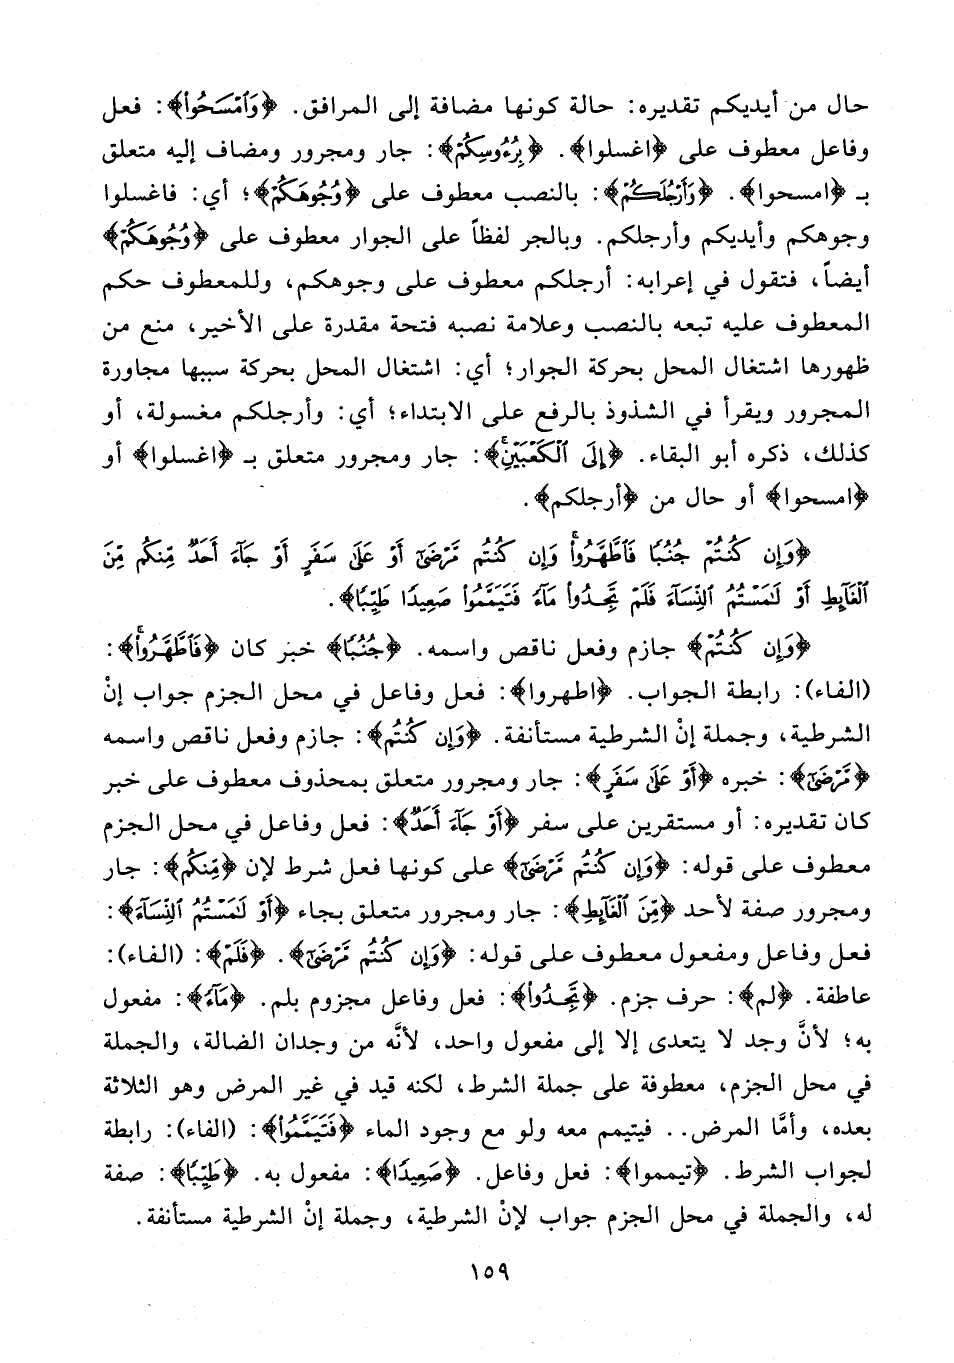 حال من أيديكم تقديره: حالة كونها مضافة إلى المرافق. ﴿وَٱمۡسَحُواْ﴾: فعل
وفاعل معطوف على ﴿اغسلوا﴾. ﴿بِرُءُوسِكُمۡ﴾: جار ومجرور ومضاف إليه متعلق
بـ ﴿امسحوا﴾. ﴿وَأَرۡجُلَكُمۡ﴾: بالنصب معطوف على ﴿وُجُوهَكُمۡ﴾؛ أي: فاغسلوا
وجوهكم وأيديكم وأرجلكم. وبالجر لفظاً على الجوار معطوف على ﴿وُجُوهَكُمۡ﴾
أيضاً، فتقول في إعرابه: أرجلكم معطوف على وجوهكم، وللمعطوف حكم
المعطوف عليه تبعه بالنصب وعلامة نصبه فتحة مقدرة على الأخير، منع من
ظهورها اشتغال المحل بحركة الجوار؛ أي: اشتغال المحل بحركة سببها مجاورة
المجرور ويقرأ في الشذوذ بالرفع على الابتداء؛ أي: وأرجلكم مغسولة، أو
كذلك، ذكره أبو البقاء. ﴿إِلَى ٱلۡكَعۡبَيۡنِۚ﴾: جار ومجرور متعلق بـ ﴿اغسلوا﴾ أو
﴿امسحوا﴾ أو حال من ﴿أرجلكم﴾.
﴿وَإِن كُنتُمۡ جُنُبٗا فَٱطَّهَّرُواْۚ وَإِن كُنتُم مَّرۡضَىٰٓ أَوۡ عَلَىٰ سَفَرٍ أَوۡ جَآءَ أَحَدٞ مِّنكُم مِّنَ
ٱلۡغَآئِطِ أَوۡ لَٰمَسۡتُمُ ٱلنِّسَآءَ فَلَمۡ تَجِدُواْ مَآءٗ فَتَيَمَّمُواْ صَعِيدٗا طَيِّبٗا﴾.
﴿وَإِن كُنتُمۡ﴾ جازم وفعل ناقص واسمه. ﴿جُنُبٗا﴾ خبر كان ﴿فَٱطَّهَّرُواْۚ﴾:
(الفاء): رابطة الجواب. ﴿اطهروا﴾: فعل وفاعل في محل الجزم جواب إنْ
الشرطية، وجملة إنْ الشرطية مستأنفة. ﴿وَإِن كُنتُم﴾: جازم وفعل ناقص واسمه
﴿مَّرۡضَىٰٓ﴾: خبره ﴿أَوۡ عَلَىٰ سَفَرٍ﴾: جار ومجرور متعلق بمحذوف معطوف على خبر
كان تقديره: أو مستقرين على سفر ﴿أَوۡ جَآءَ أَحَدٞ﴾: فعل وفاعل في محل الجزم
معطوف على قوله: ﴿وَإِن كُنتُم مَّرۡضَىٰٓ﴾ على كونها فعل شرط لإن ﴿مِّنكُم﴾: جار
ومجرور صفة لأحد ﴿مِّنَ ٱلۡغَآئِطِ﴾: جار ومجرور متعلق بجاء ﴿أَوۡ لَٰمَسۡتُمُ ٱلنِّسَآءَ﴾:
فعل وفاعل ومفعول معطوف على قوله: ﴿وَإِن كُنتُم مَّرۡضَىٰٓ﴾. ﴿فَلَمۡ﴾: (الفاء):
عاطفة. ﴿لم﴾: حرف جزم. ﴿تَجِدُواْ﴾: فعل وفاعل مجزوم بلم. ﴿مَآءٗ﴾: مفعول
به؛ لأنَّ وجد لا يتعدى إلا إلى مفعول واحد، لأنَّه من وجدان الضالة، والجملة
في محل الجزم، معطوفة على جملة الشرط، لكنه قيد في غير المرض وهو الثلاثة
بعده، وأمَّا المرض.. فيتيمم معه ولو مع وجود الماء ﴿فَتَيَمَّمُواْ﴾: (الفاء): رابطة
لجواب الشرط. ﴿تيمموا﴾: فعل وفاعل. ﴿صَعِيدٗا﴾: مفعول به. ﴿طَيِّبٗا﴾: صفة
له، والجملة في محل الجزم جواب لإنْ الشرطية، وجملة إنْ الشرطية مستأنفة.
١٥٩